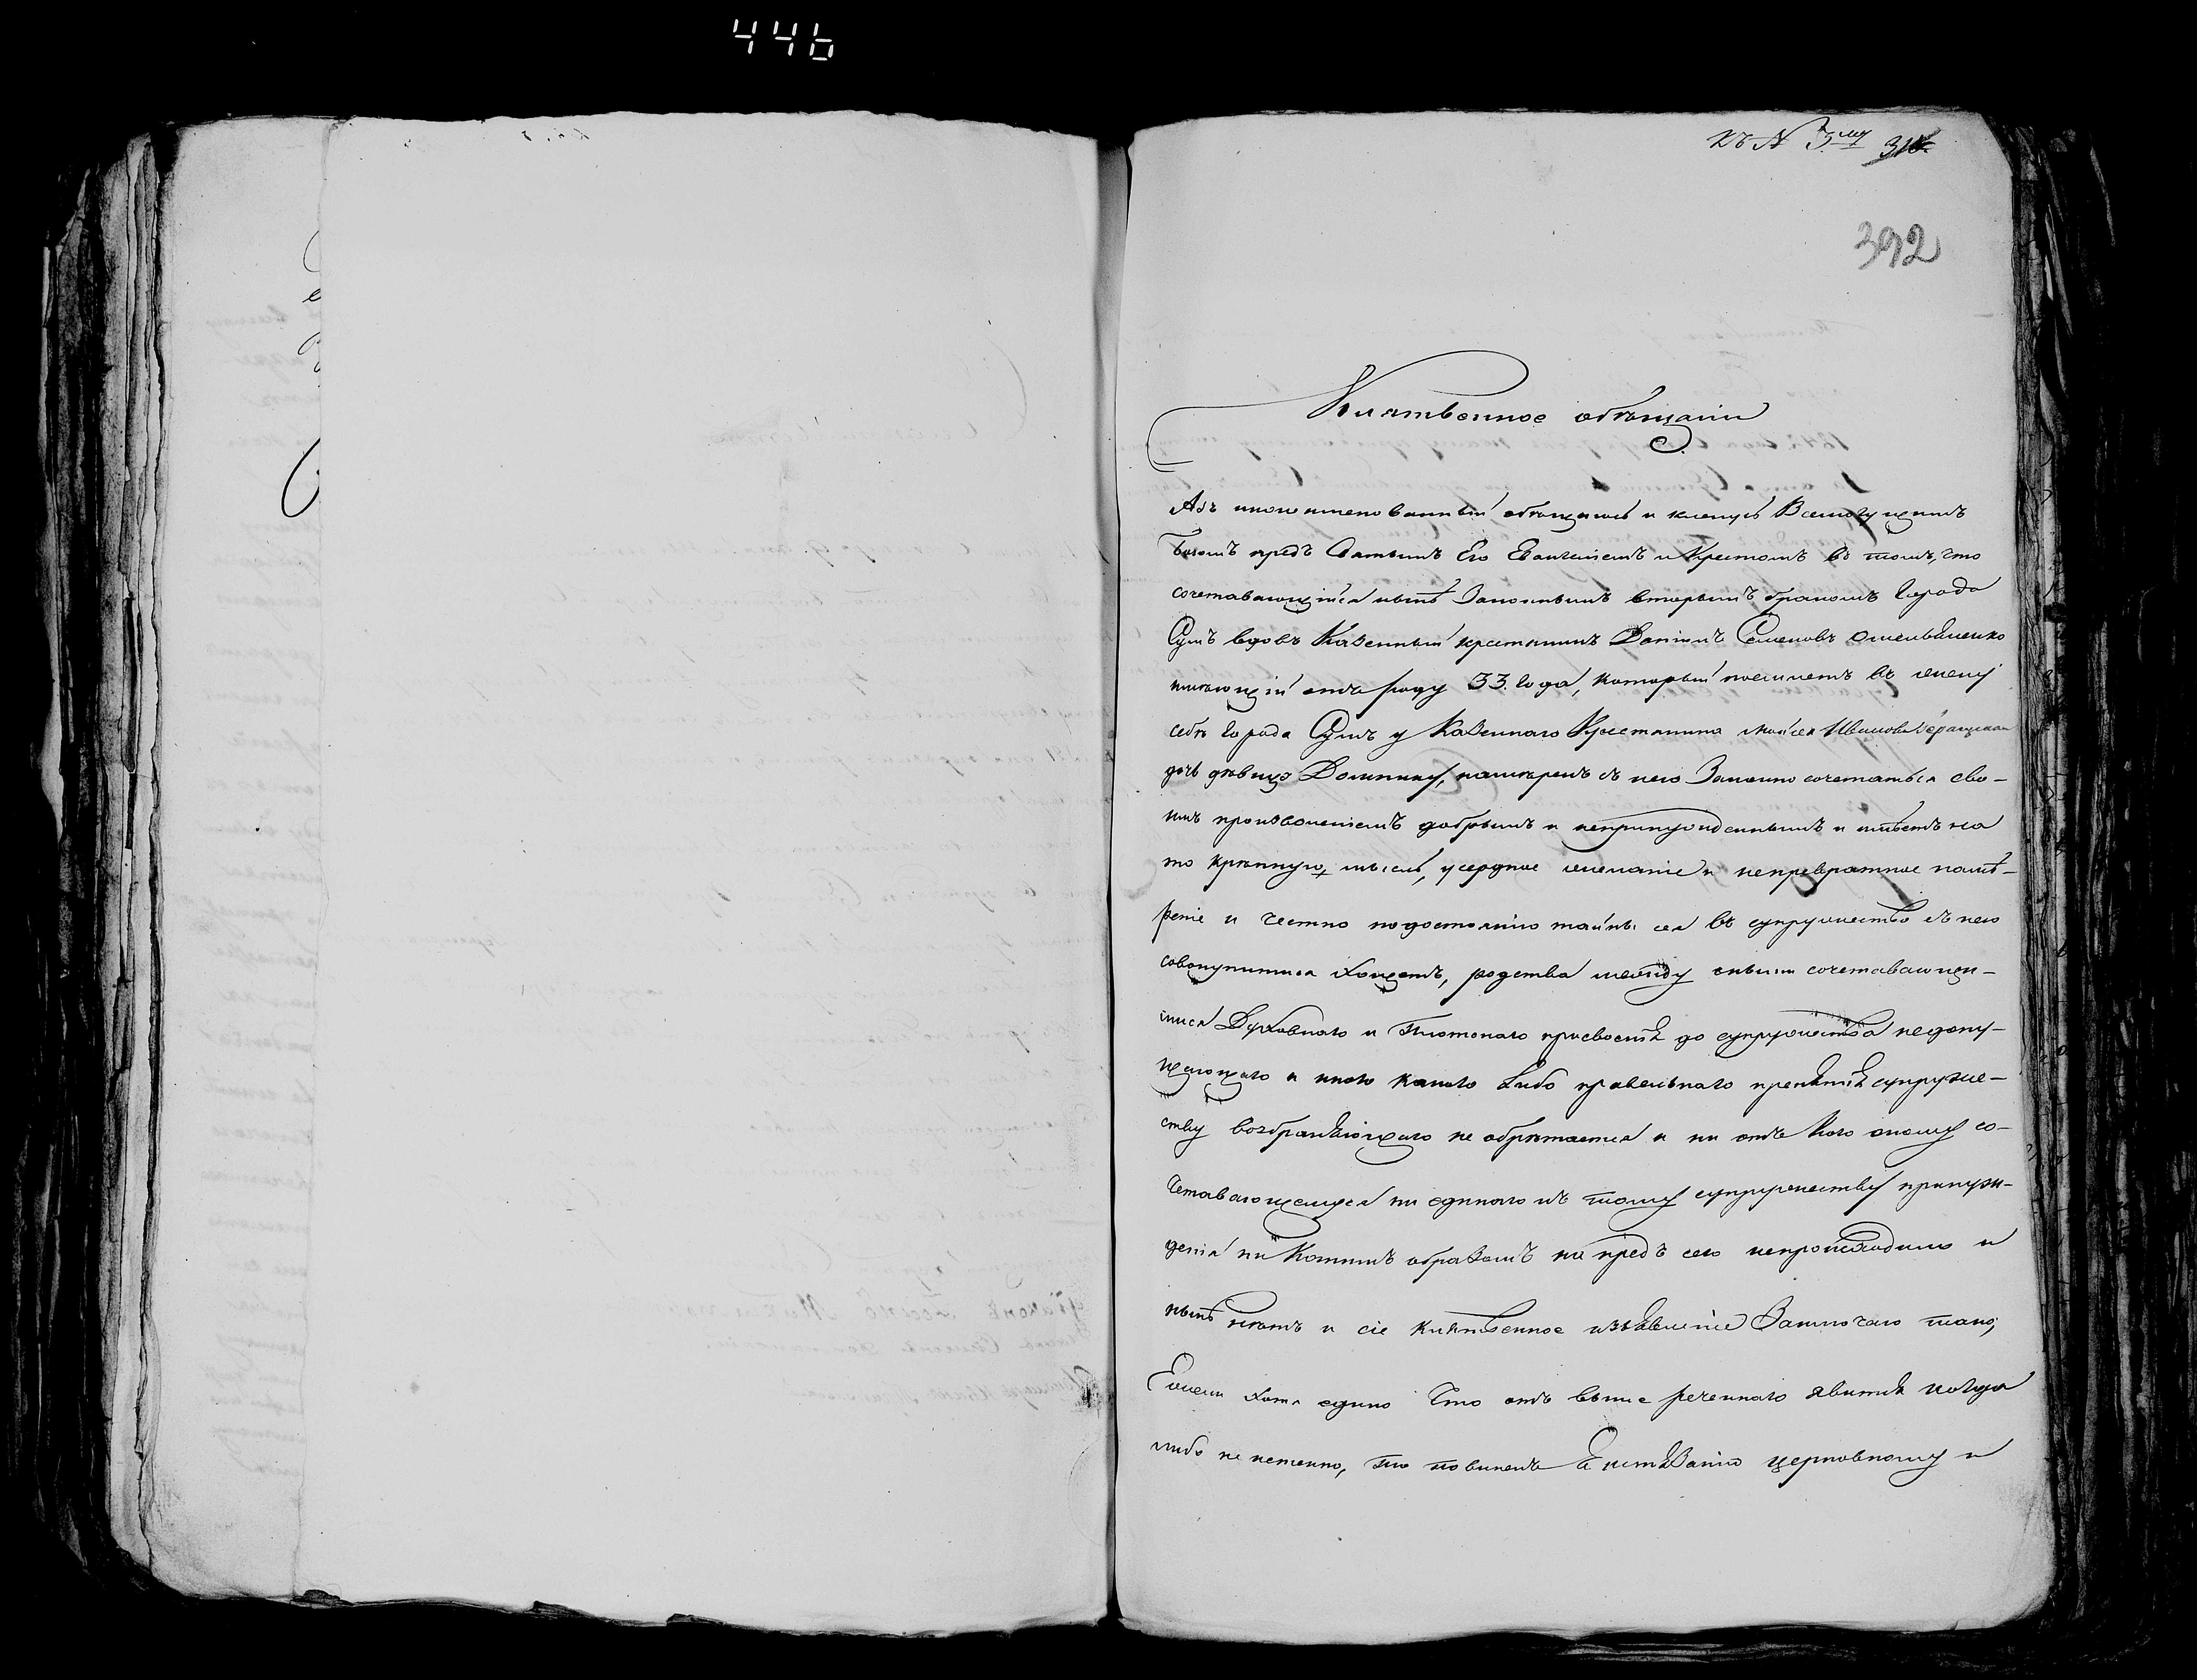 446
къ N 3му 316.
392
Клятвенное обѣщаніе
Азъ нижеименованный обѣщаюсь и кленусь Всемогущимъ
Богомъ предъ Святымъ Его Евангелiемъ и Крестомъ въ томъ, что
сочетавающiйся нынѣ Законнымъ вторымъ бракомъ города
Сумъ вдовъ Казенный крестянинъ Данiилъ Семеновъ Омельяненко
имѣющiй отъ роду 33. года, который поемлетъ въ жену
себѣ города Сумъ у Казеннаго Крестянина Моисея Иванова
дочь дѣвицу Домникiю, намѣренъ съ нею Законно сочетаться сво-
имъ произволенiемъ добрымъ и непринужденнымъ и имѣетъ на
то крѣпкую мысль, усердное желанiе и непревратное намѣ-
ренiе и честно по достоянiю тайны сея въ супружество съ нею
совокупитися хощетъ, родства между сными сочетавающи-
мися Духовнаго и Плотскаго присвоенiя до супружества недопу-
щающаго и иного какого Либо правельнаго препятiя супруже-
ству возбраняющаго не обрѣтается и ни отъ Кого оному со-
четавающемуся ни единаго къ тому супружеству принуж-
денiя ни Коимъ образомъ на предъ сего непроисходило и
нынѣ нѣтъ и сiе клятвенное изъявленiе Заключаю тако,
Ежели хотя едино Что отъ выше реченнаго явится когда
либо не истенно, то повиненъ Е истязанiю церковному и